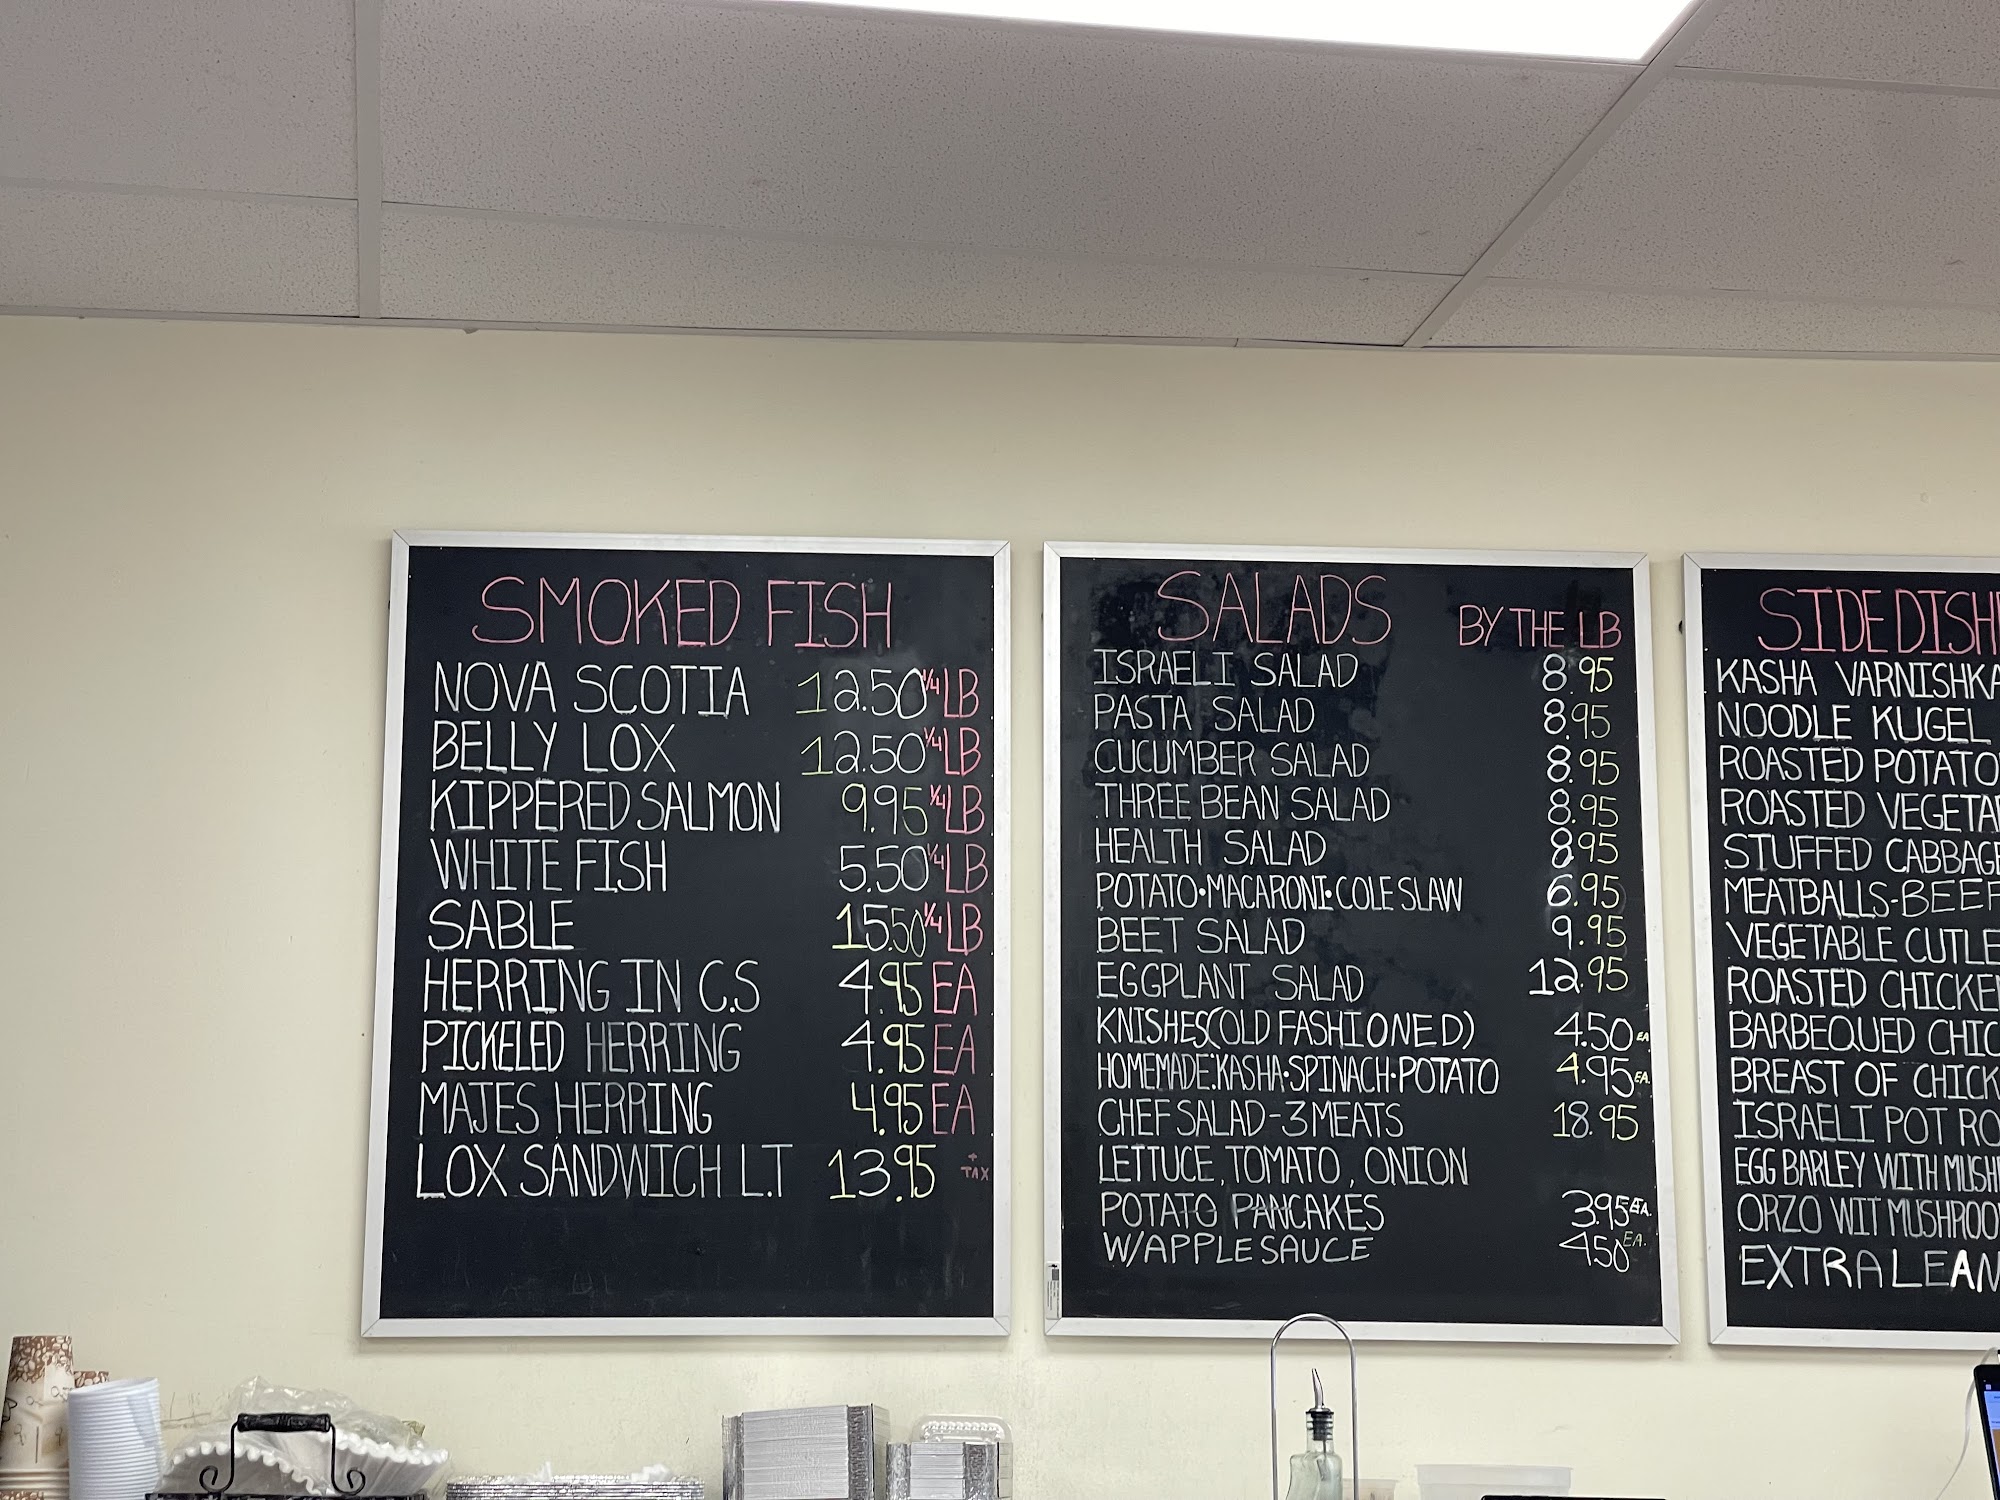 SMOKED FISH
NOVA SCOTIA 12.50 1/4 LB
BELLY LOX 12.50 1/4 LB
KIPPERED SALMON 9.95 1/4 LB
WHITE FISH 5.50 1/4 LB
SABLE 15.50 1/4 LB
HERRING IN C.S 4.95 EA
PICKELED HERRING 4.95 EA
MAJES HERRING 4.95 EA
LOX SANDWICH L.T 13.95 + TAX
SALADS BY THE LB
ISRAELI SALAD 8.95
PASTA SALAD 8.95
CUCUMBER SALAD 8.95
THREE BEAN SALAD 8.95
HEALTH SALAD 8.95
POTATO•MACARONI•COLE SLAW 6.95
BEET SALAD 9.95
EGGPLANT SALAD 12.95
KNISHES(OLD FASHIONED) 4.50 EA
HOMEMADE:KASHA•SPINACH•POTATO 4.95 EA.
CHEF SALAD-3 MEATS 18.95
LETTUCE, TOMATO, ONION
POTATO PANCAKES 3.95 EA.
W/APPLE SAUCE 4.50 EA.
SIDE DISH
KASHA VARNISHKA
NOODLE KUGEL
ROASTED POTATO
ROASTED VEGETA
STUFFED CABBAGE
MEATBALLS-BEEF
VEGETABLE CUTLE
ROASTED CHICKE
BARBEQUED CHIC
BREAST OF CHICK
ISRAELI POT RO
EGG BARLEY WITH MUSH
ORZO WIT MUSHROO
EXTRA LEAN